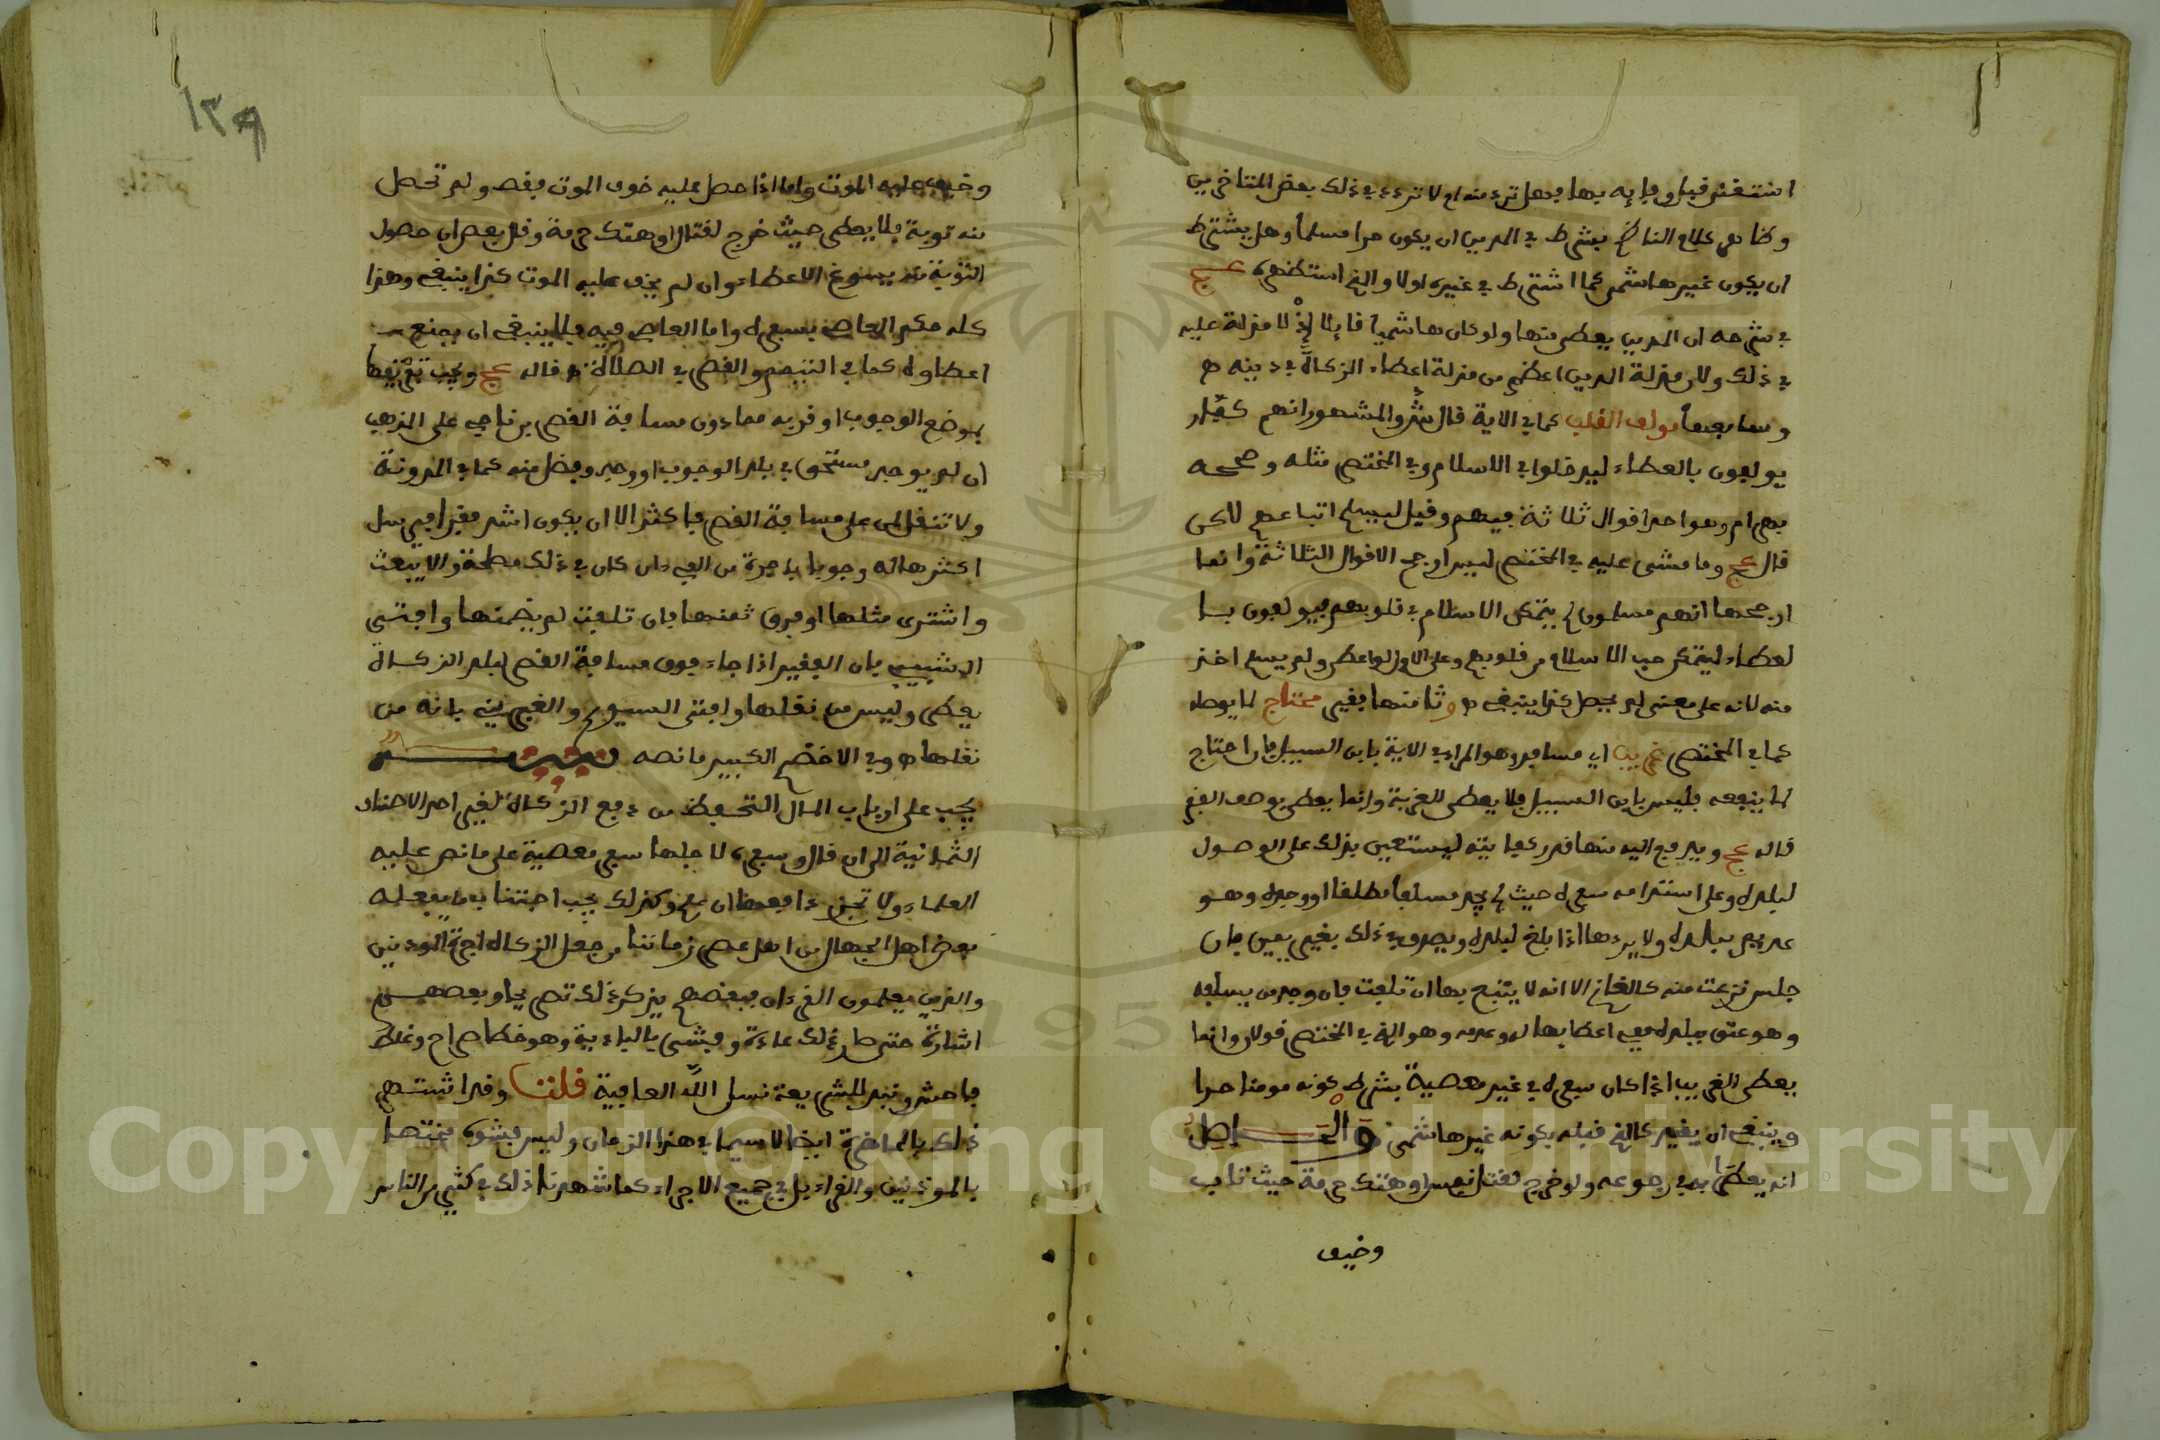 استغنى قبل وفائه بها فهل ترد منه او لا تردد في ذلك بعض المتاخرين
وظاهر كلام الناظم يشترط في المدين ان يكون حرا مسلما وهل يشترط
ان يكون غير هاشمي كما اشترط في غيره اولا والذي استظهره عج
في شرحه ان المدين يعطى منها ولو كان هاشميا قائلا اذ لا مذلة عليه
في ذلك ولان مذلة الدين اعظم من مذلة اعطاء الزكاة في دينه
مولف القلب كما في الاية قال والمشهور انهم كفار
يولفون بالعطاء ليدخلوا في الاسلام وفي المختصر مثله وصححه
بهرام وهو احد اقوال ثلاثة فيهم وقيل ليسلم اتباعهم
قال عج وما مشى عليه في المختصر ليس ارجح الاقوال الثلاثة وانما
ارجحها انهم مسلمون لم يتمكن الاسلام في قلوبهم فيولفون با
لعطاء ليتمكن حب الاسلام من قلوبهم وعلى الاول لو اعطي ولم يسلم اخذ
منه لانه على معنى لم يحصل كذا ينبغي وثامنها فقير محتاج لما يوصله
كما في المختصر غريب اي مسافر وهو المراد في الاية بابن السبيل فان احتاج
لما ينفعه فليس بابن السبيل فلا يعطى للغربة وانما يعطى بوصف الفقر
قاله عج ويدفع اليه منها قدر كفايته ليستعين بذلك على الوصول
لبلده وعلى استدامة سفره حيث لم يجد مسلفا مطلقا او وجده وهو
عديم ببلده ولا يردها اذا بلغ لبلده ويصدق في ذلك بغير يمين فان
جلس نزعت منه كالغازي الا انه لا يتبع بها ان تلفت فان وجد من يسلفه
وهو غني ببلده ففي اعطائها له وعدمه وهو الذي في المختصر قولان وانما
يعطى الغريب اذا كان سفره في غير معصية بشرط كونه مومنا حرا
وينبغي ان يقيد كالذي قبله بكونه غير هاشمي والحاصل
انه يعطى في رجوعه ولو خرج لقتل نفس او هتك حرمة حيث تاب
وخيف
وخيف عليه الموت واما اذا حصل عليه خوف الموت فقط ولم تحصل
منه توبة فلا يعطى حيث خرج لقتل او هتك حرمة وقال بعض ان حصول
التوبة منه يسوغ الاعطاء وان لم يخف عليه الموت كذا ينبغي وهذا
كله حكم العاصي بسفره واما العاصي فيه فلا ينبغي ان يمنع من
اعطائه كما في التيمم والقصر في الصلاة قاله عج ويجب تفرقتها
بموضع الوجوب او قربه مما دون مسافة القصر من ناحيه على المذهب
ان لم يوجد مستحق في بلد الوجوب او وجد وفضل منه كما في المدونة
ولا تنقل الى على مسافة القصر فاكثر الا ان يكون اشد فقرا فيرسل
اكثرها له وجوبا باجرة من الفيء ان كان في ذلك مصلحة والا يبعث
واشترى مثلها او فرق ثمنها فان تلفت لم يضمنها وافتى
الشبيبي بان الفقير اذا جاء فوق مسافة القصر لبلد الزكاة
يعطى وليس من نقلها وافتى السيوري والغبريني بانه من
نقلها وفي الاخضر الكبير ما نصه تنبيه
يجب على ارباب المال التحفظ من دفع الزكاة لغير احد الاصناف
الثمانية الى ان قال وسفره لاجلها سفر معصية على ما نص عليه
العلماء ولا تجزي دافعها ان علم وكذلك يجب اجتناب ما يفعله
بعض اهل الجهل من اهل عصر زماننا من جعل الزكاة اجرة الموذنين
والذين يعلمون القرءان فبعضهم يذكر ذلك تصريحا وبعضهم
اشارة حتى صار ذلك عادة وفشى بالبادية وهو خطا صراح وغلط
فاحش ونبذ للشريعة نسل الله العافية قلت وقد اشتهر
ذلك بالحاضرة ايضا لا سيما في هذا الزمان وليس فشوه مختصا
بالموذنين والقراء بل في جميع الاجراء كما شهدنا ذلك في كثير من الناس
١٣٩